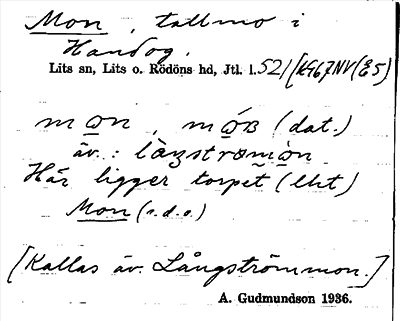 Mon, tallmo i
Handog.
Lits sn, Lits o. Rödöns hd, Jtl. l. 52/[K967NV(Ö5)
mon, móʙ (dat.)
äv.:
Här ligger torpet (lht)
Mon (s.d.o.)
[Kallas äv. Långströmmon.]
A. Gudmundson 1936.